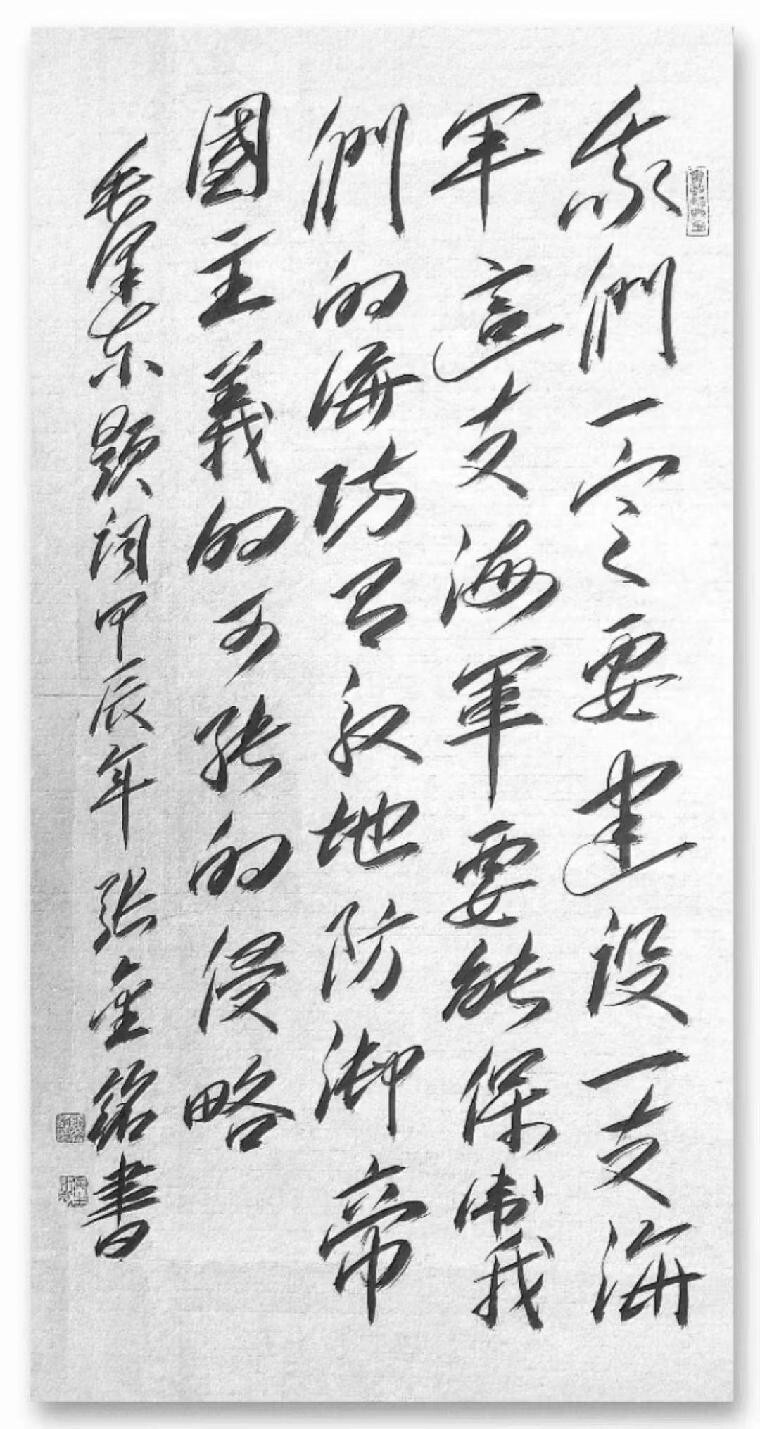 我們一定要建设一支海
军這支海軍要能保衛我
們的海防有效地防御帝
國主義的可能的侵略
毛泽东题词甲辰年张金铭書